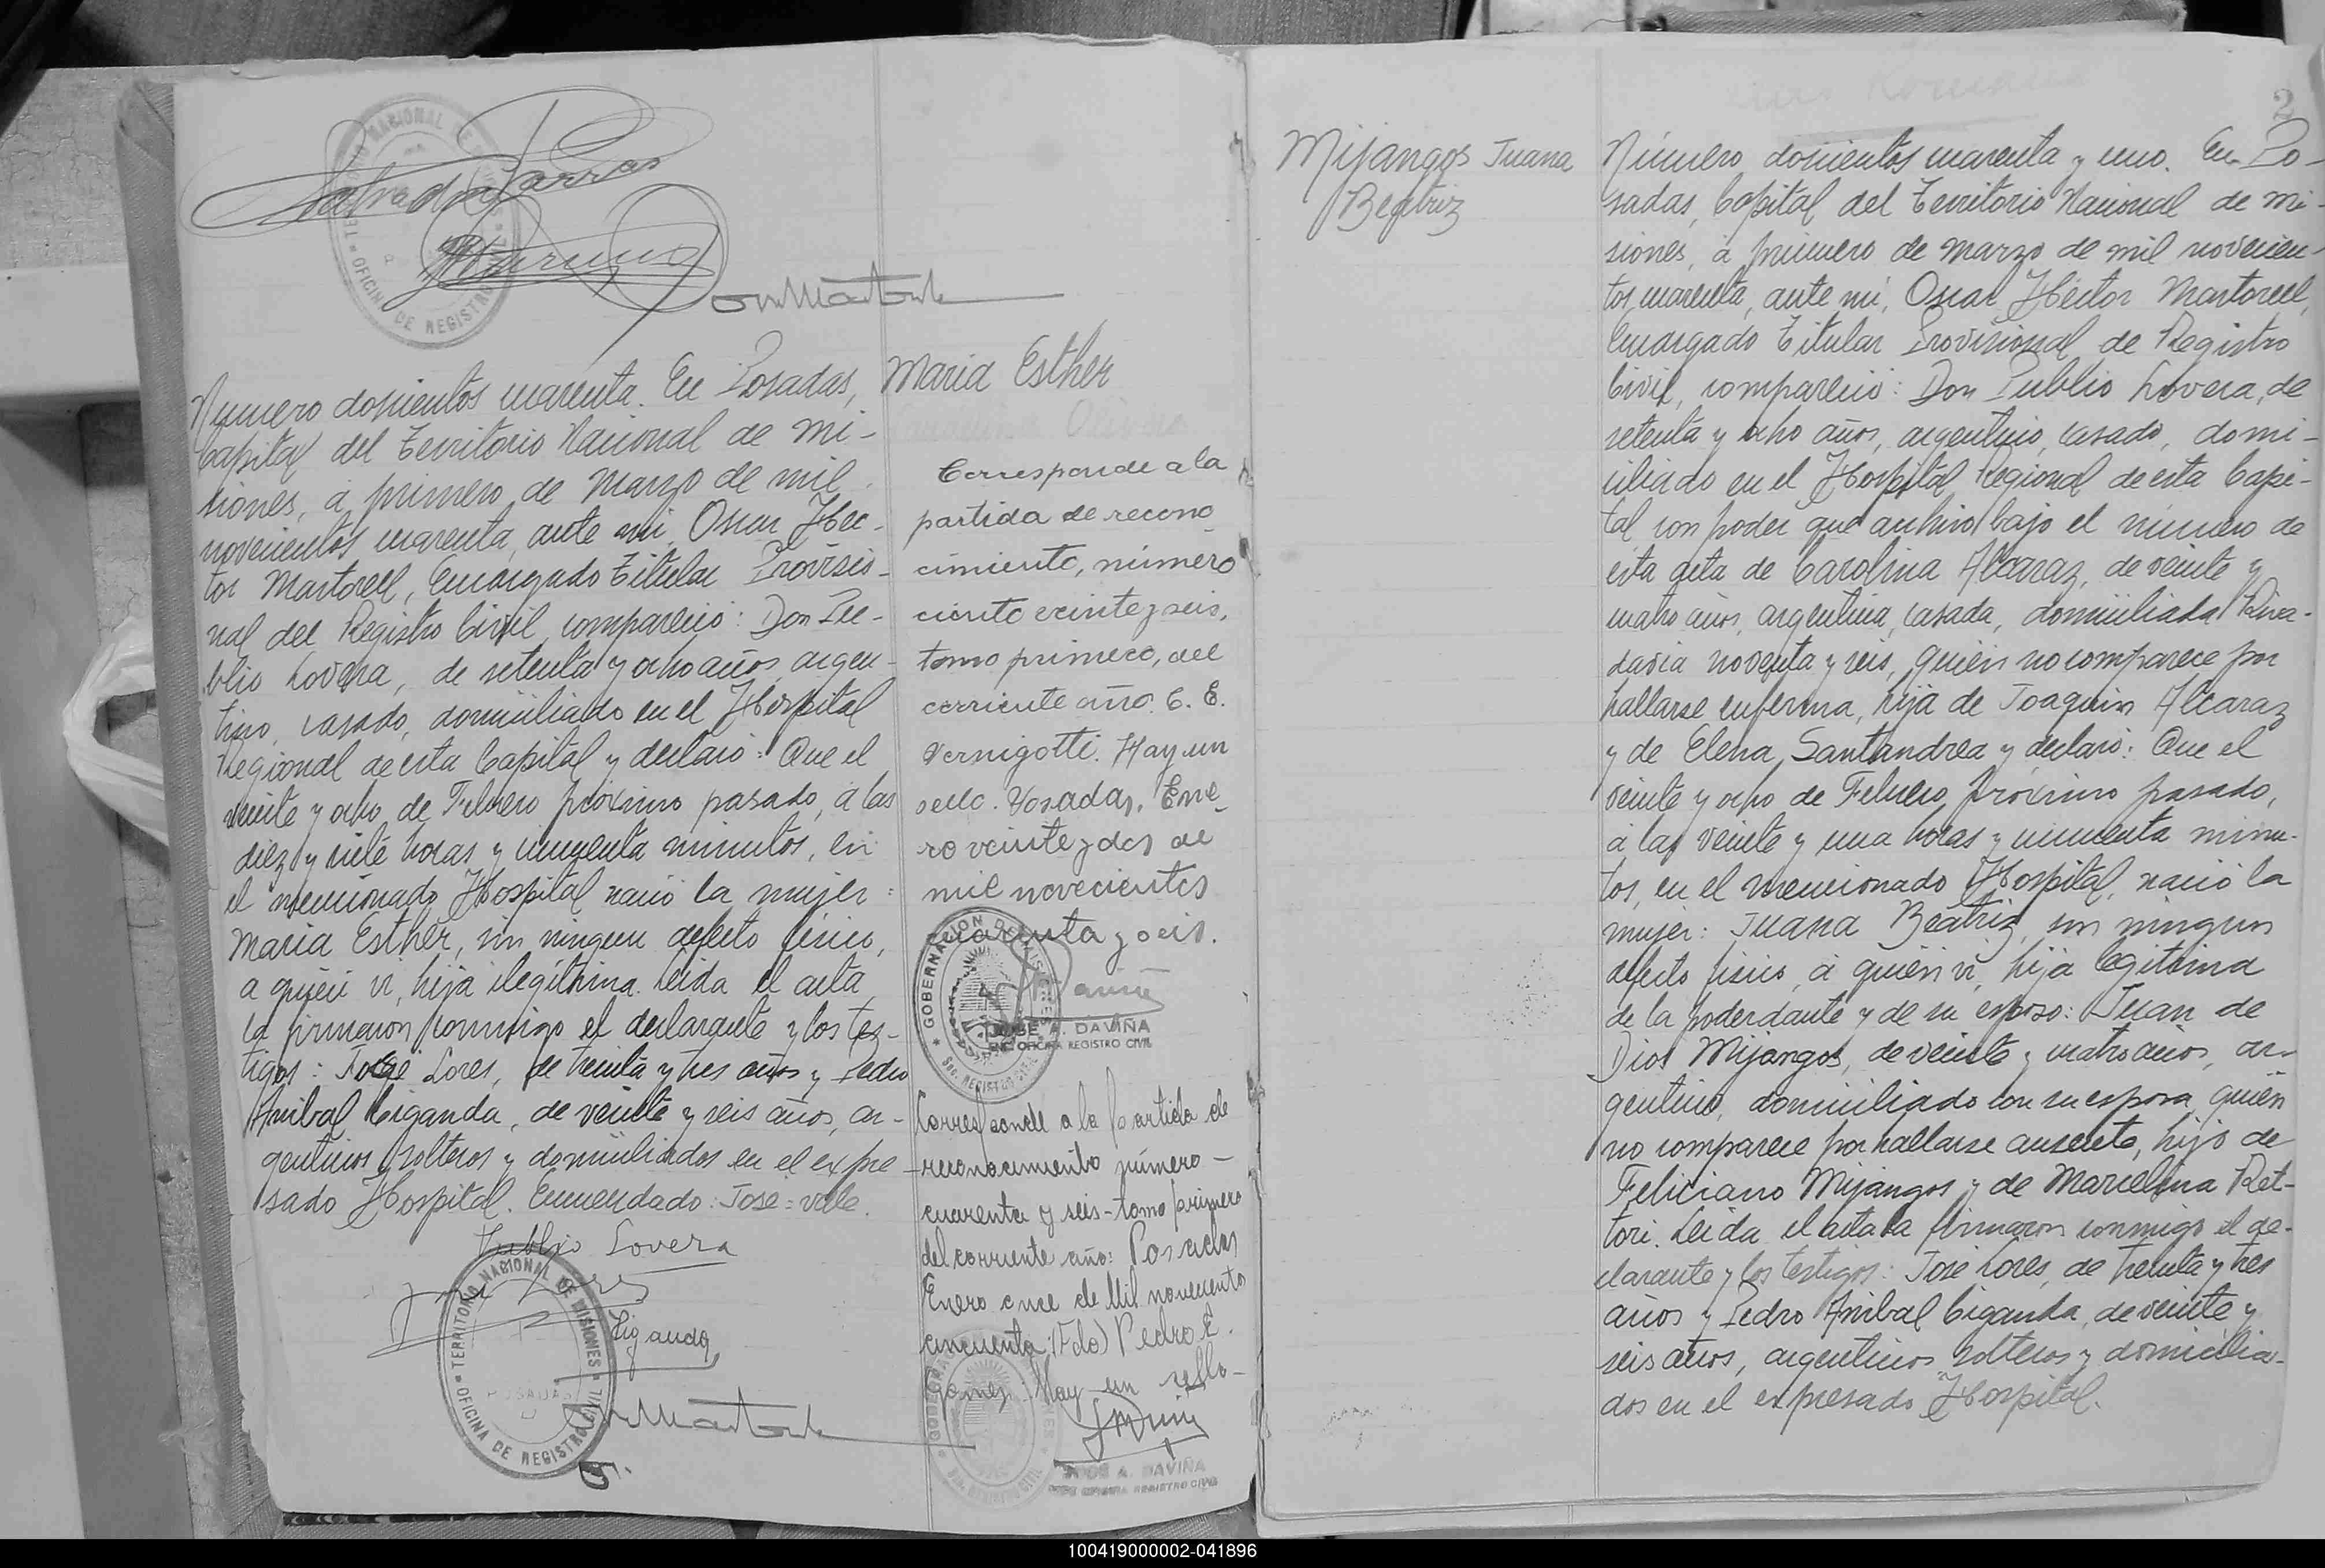 Salvador Parras
Numero doscientos cuarenta. En Posadas,
Capital del Territorio Nacional de Mi-
siones, á primero de Marzo de mil
novecientos cuarenta, ante mi, Oscar Hec-
tor Martorell, Encargado Titular Provisio-
nal del Registro Civil, compareció: Don Pu-
blio Lovera, de setenta y ocho años, argen-
tino, casado, domiciliado en el Hospital
Regional de esta Capital y declaró: Que el
veinte y ocho de Febrero próximo pasado, á las
diez y siete horas y cincuenta minutos, en
el mencionado Hospital nació la mujer:
Maria Esther, sin ningun defecto físico,
a quién vi, hija ilegítima. Leida el acta,
la firmaron conmigo el declarante y los tes-
tigos: José Lores, de treinta y tres años y Pedro
Anibal Ciganda, de veinte y seis años, ar-
gentinos solteros y domiciliados en el expre-
sado Hospital. Enmendado: José=vale.
Publio Lovera
José Lores
Ciganda
TERRITORIO NACIONAL DE MISIONES
OFICINA DE REGISTRO CIVIL
POSADAS
Maria Esther
Corresponde a la
partida de recono
cimiento, número
ciento veinte y seis,
tomo primero, del
corriente año. C. E.
Vernigotti. Hay un
sello. Posadas, Ene
ro veinte y dos de
mil novecientos
cuarenta y seis.
GOBERNACION DE MISIONES
JOSE A. DAVIÑA
ENC. OFICINA REGISTRO CIVIL
Corresponde a la partida de
reconocimiento número-
cuarenta y seis-tomo primero
del corriente año: Posadas
Enero once de Mil novecientos
cincuenta (Fdo) Pedro E.
Gomez. Hay un sello-
JOSE A. DAVIÑA
JEFE OFICINA REGISTRO CIVIL
Mijangos Juana
Beatriz
2
Número doscientos cuarenta y uno. En Po-
sadas, Capital del Territorio Nacional de Mi-
siones, á primero de Marzo de mil novecien-
tos cuarenta, ante mi, Oscar Héctor Martorell,
Encargado Titular Provisional de Registro
Civil, compareció: Don Publio Lovera, de
setenta y ocho años, argentino, casado, domi-
ciliado en el Hospital Regional de esta Capi-
tal con poder que archivo bajo el número de
esta acta de Carolina Alcaraz, de veinte y
cuatro años, argentina, casada, domiciliada Riva-
davia noventa y seis, quién no comparece por
hallarse enferma, hija de Joaquin Alcaraz
y de Elena Santandrea y declaró: Que el
veinte y ocho de Febrero próximo pasado,
á las veinte y una horas y cincuenta minu-
tos, en el mencionado Hospital, nació la
mujer: Juana Beatriz, sin ningun
defecto fisico, á quién vi, hija legitima
de la poderdante y de su esposo: Juan de
Dios Mijangos, de veinte y cuatro años, ar-
gentino, domiciliado con su esposa, quién
no comparece por hallarse ausente, hijo de
Feliciano Mijangos y de Marcelina Ret-
tori. Leida el acta la firmaron conmigo el de-
clarante y los testigos: José Lores, de treinta y tres
años y Pedro Anibal Ciganda, de veinte y
seis años, argentinos solteros y domicilia-
dos en el expresado Hospital.
100419000002-041896